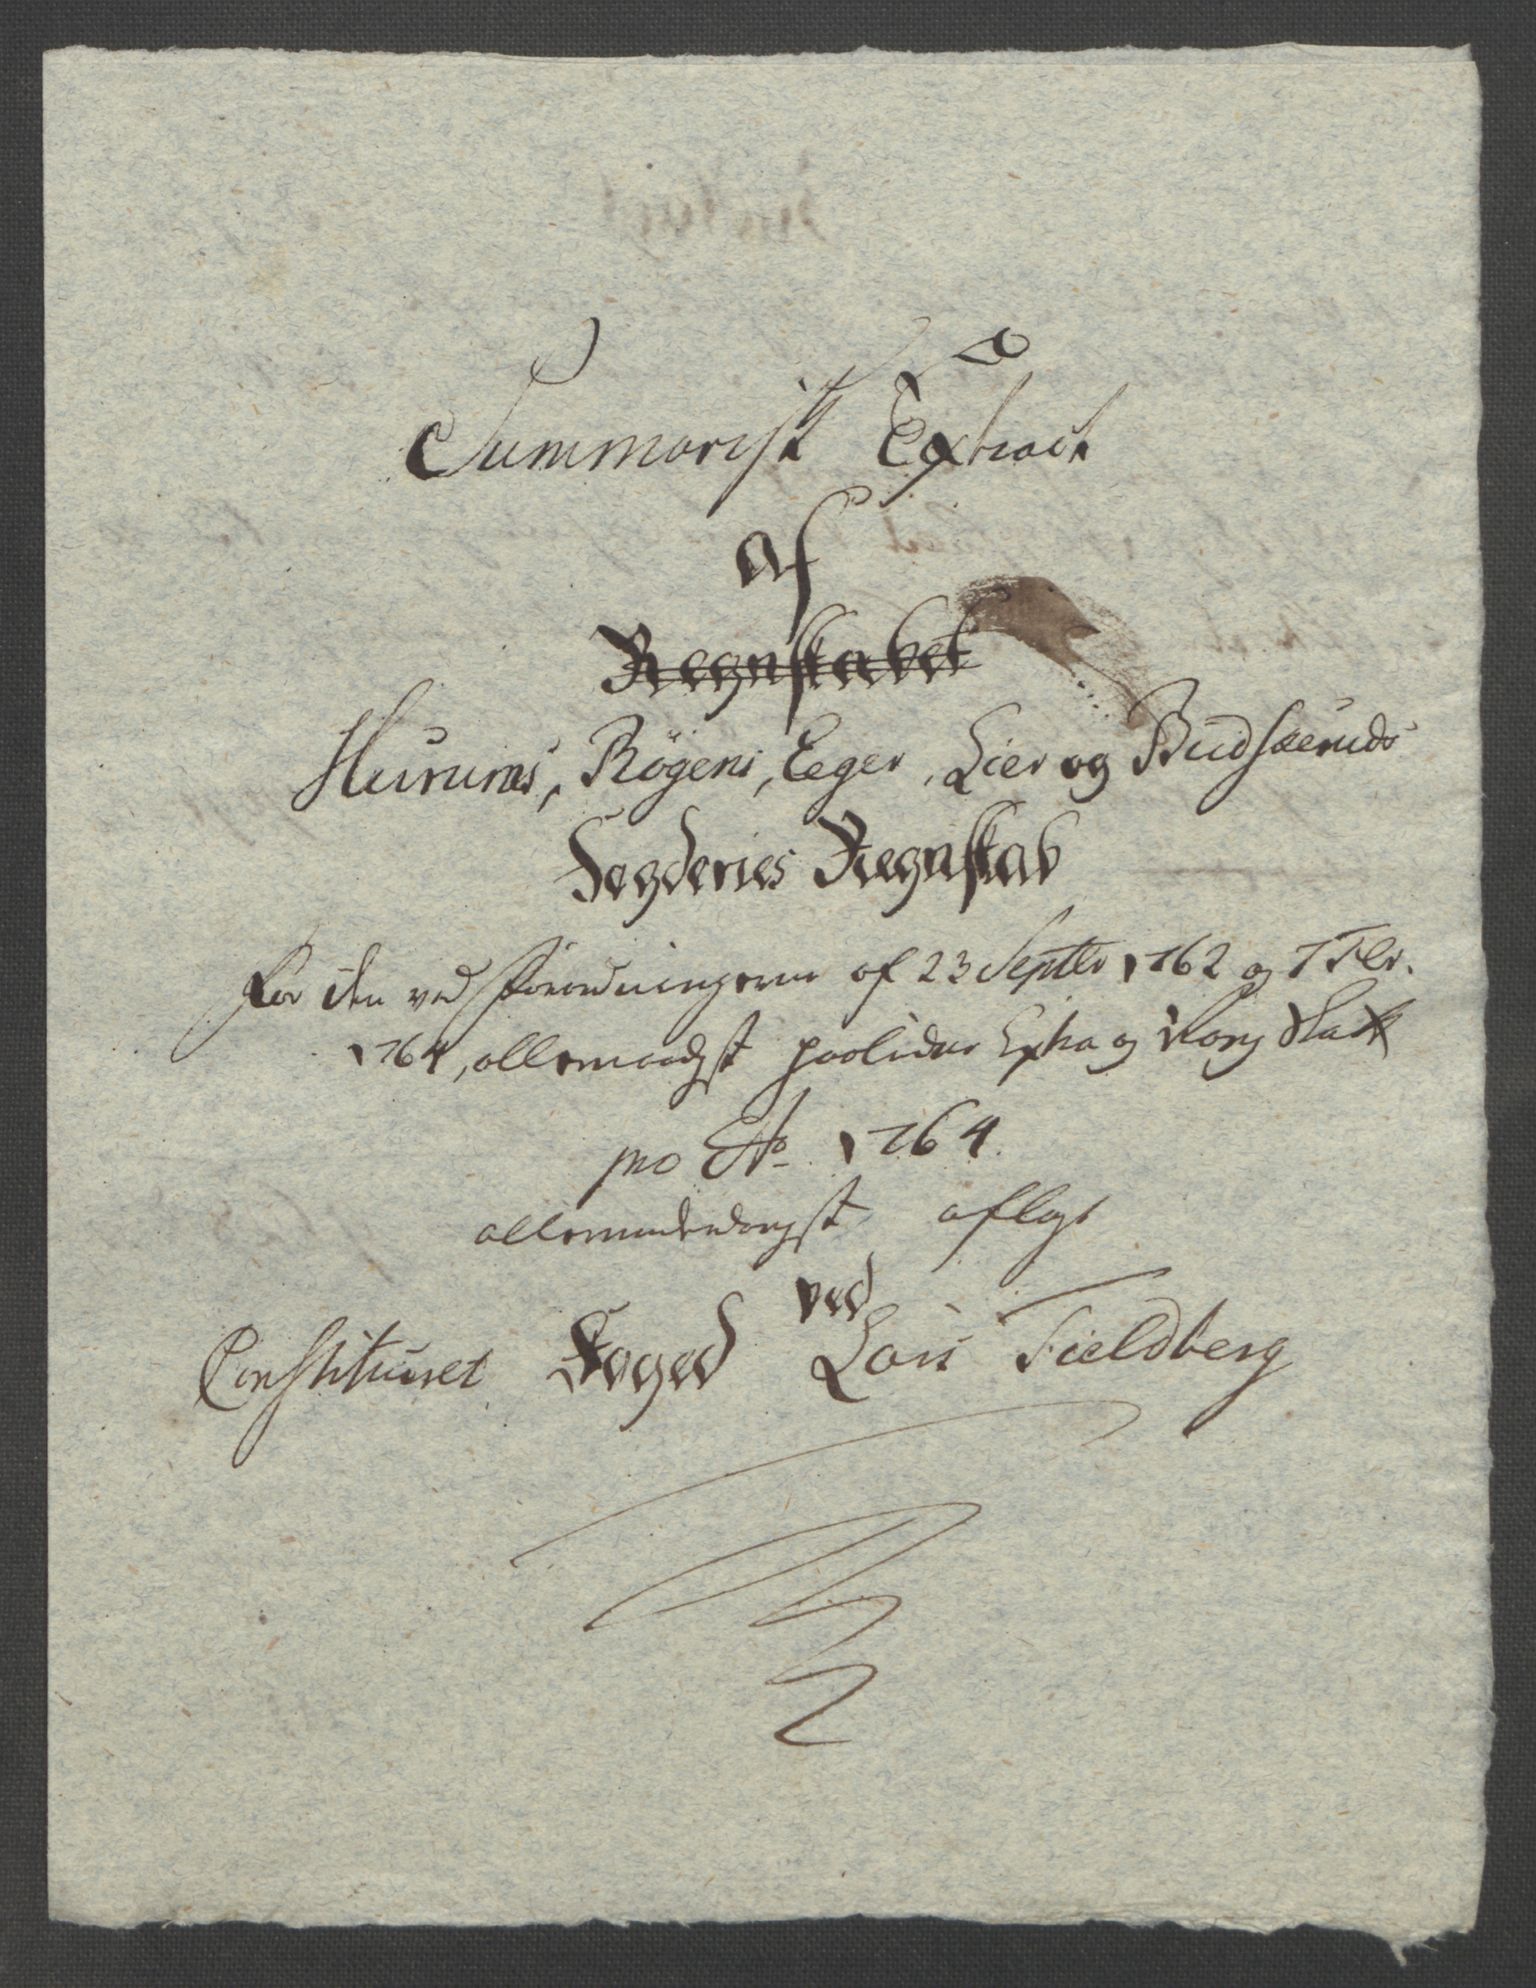 Summarisk Extract
af
Regnskabet
Hurums, Røgens, Eeger, Lier og Budskeruds
Fogderies Regnskab
for den ved Forordningerne af 23 Septbr 1762 og 7 Febr.
1764, allernaadgst paalidne Extra og Kong Skatt
pro Ao 1764.
allerunderdangst aflagt
ved
Constitueret Foged Lars Fieldberg